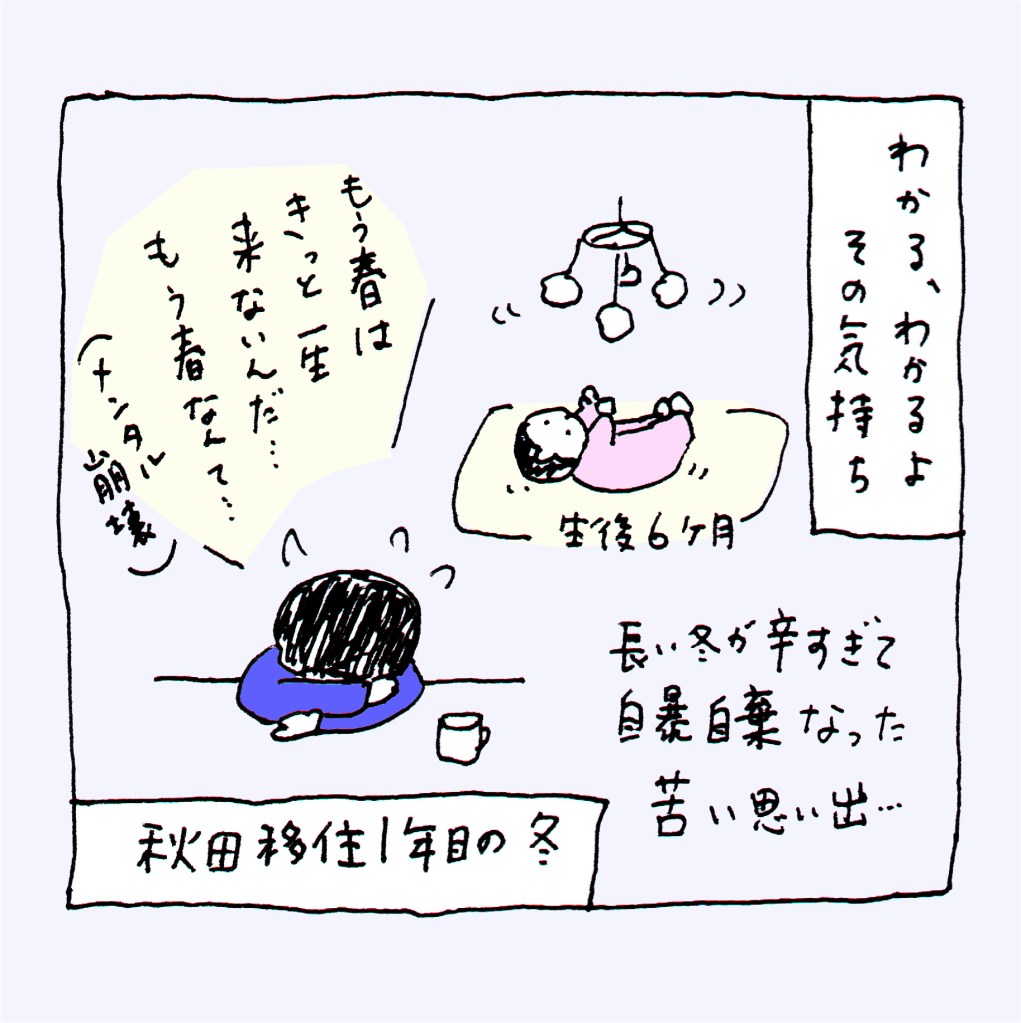 わかる、わかるよ
その気持ち
もう春は
きっと一生
来ないんだ…
もう春なんて…
(メンタル
崩壊)
生後6ヶ月
長い冬が辛すぎて
自暴自棄なった
苦い思い出…
秋田移住1年目の冬